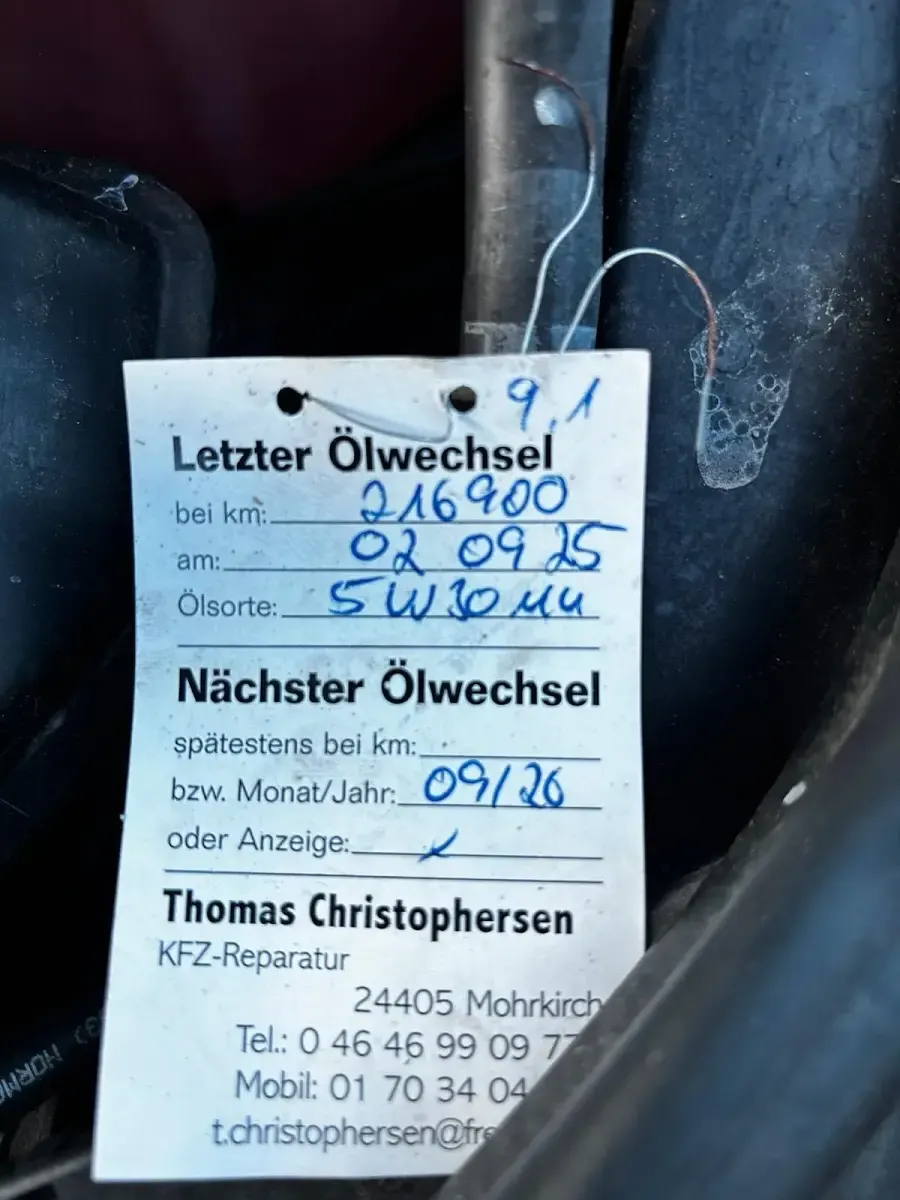 9,1
Letzter Ölwechsel
bei km: 216900
am: 02 09 25
Ölsorte: 5W30
Nächster Ölwechsel
spätestens bei km:
bzw. Monat/Jahr: 09/26
oder Anzeige:
Thomas Christophersen
KFZ-Reparatur
24405 Mohrkirch
Tel.: 0 46 46 99 09 77
Mobil: 01 70 34 04
t.christophersen@fre